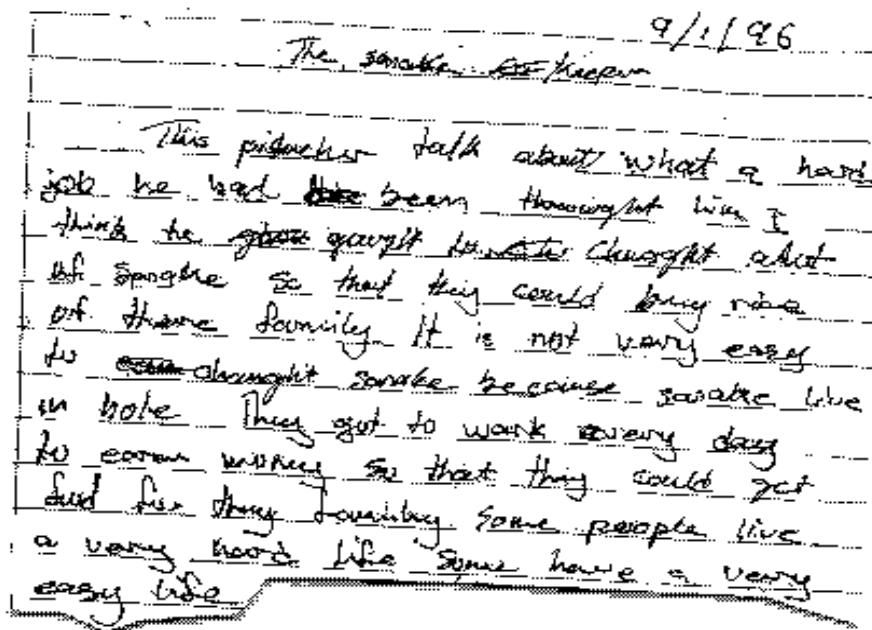 9/1/96
The snake keeper
This pictucher talk about what a hard
job he had been throught him I
think he gaught to chaught alot
of snake so that they could buy rice
of there family It is not very easy
to chaught snake because snake live
in hole They got to work every day
to earn money so that they could get
fud for they family Some people live
a very hard life Some have a very
easy life